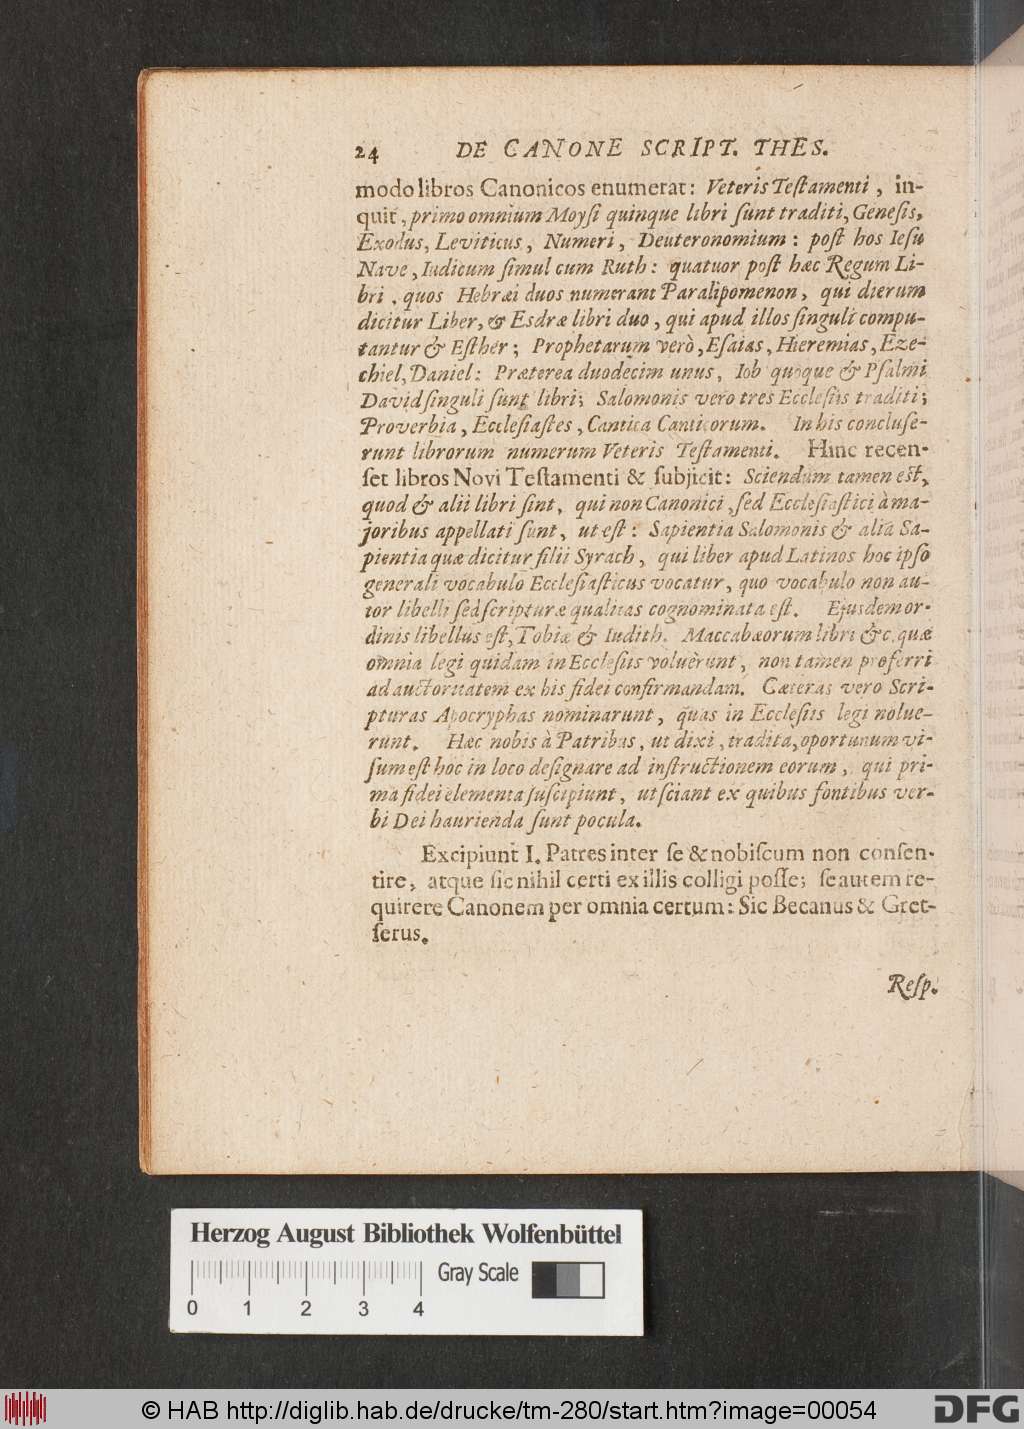 24 DE CANONE SCRIPT. THES.
modo libros Canonicos enumerat: Veteris Teſtamenti, in-
quit, primo omnium Moyſi quinque libri ſunt traditi, Geneſis,
Exodus, Leviticus, Numeri, Deuteronomium: poſt hos Ieſu
Nave, Iudicum ſimul cum Ruth: quatuor poſt hæc Regum Li-
bri, quos Hebræi duos numerant Paralipomenon, qui dierum
dicitur Liber, & Esdræ libri duo, qui apud illos ſinguli compu-
tantur & Eſther; Prophetarum verò, Eſaias, Hieremias, Eze-
chiel, Daniel: Præterea duodecim unus, Iob quoque & Pſalmi
David ſinguli ſunt libri; Salomonis vero tres Eccleſiis traditi;
Proverbia, Eccleſiaſtes, Cantica Canticorum. In his concluſe-
runt librorum numerum Veteris Teſtamenti. Hinc recen-
ſet libros Novi Teſtamenti & ſubjicit: Sciendum tamen eſt,
quod & alii libri ſint, qui non Canonici, ſed Eccleſiaſtici à ma-
joribus appellati ſunt, ut eſt: Sapientia Salomonis & alia Sa-
pientia quæ dicitur filii Syrach, qui liber apud Latinos hoc ipſo
generali vocabulo Eccleſiaſticus vocatur, quo vocabulo non au-
tor libelli ſed ſcripturæ qualitas cognominata eſt. Ejusdem or-
dinis libellus eſt, Tobiæ & Iudith. Maccabæorum libri &c. quæ
omnia legi quidam in Eccleſiis voluèrunt, non tamen proferri
ad auctoritatem ex his fidei confirmandam. Cæteras vero Scri-
pturas Apocryphas nominarunt, quas in Eccleſiis legi nolue-
runt. Hæc nobis à Patribus, ut dixi, tradita, oportunum vi-
ſum eſt hoc in loco deſignare ad inſtructionem eorum, qui pri-
ma fidei elementa ſuſcipiunt, ut ſciant ex quibus fontibus ver-
bi Dei haurienda ſunt pocula.
Excipiunt I. Patres inter ſe & nobiſcum non conſen-
tire, atque ſic nihil certi ex illis colligi poſſe; ſe autem re-
quirere Canonem per omnia certum: Sic Becanus & Gret-
ſerus.
Reſp.
Herzog August Bibliothek Wolfenbüttel
Gray Scale
0 1 2 3 4
© HAB http://diglib.hab.de/drucke/tm-280/start.htm?image=00054
DFG